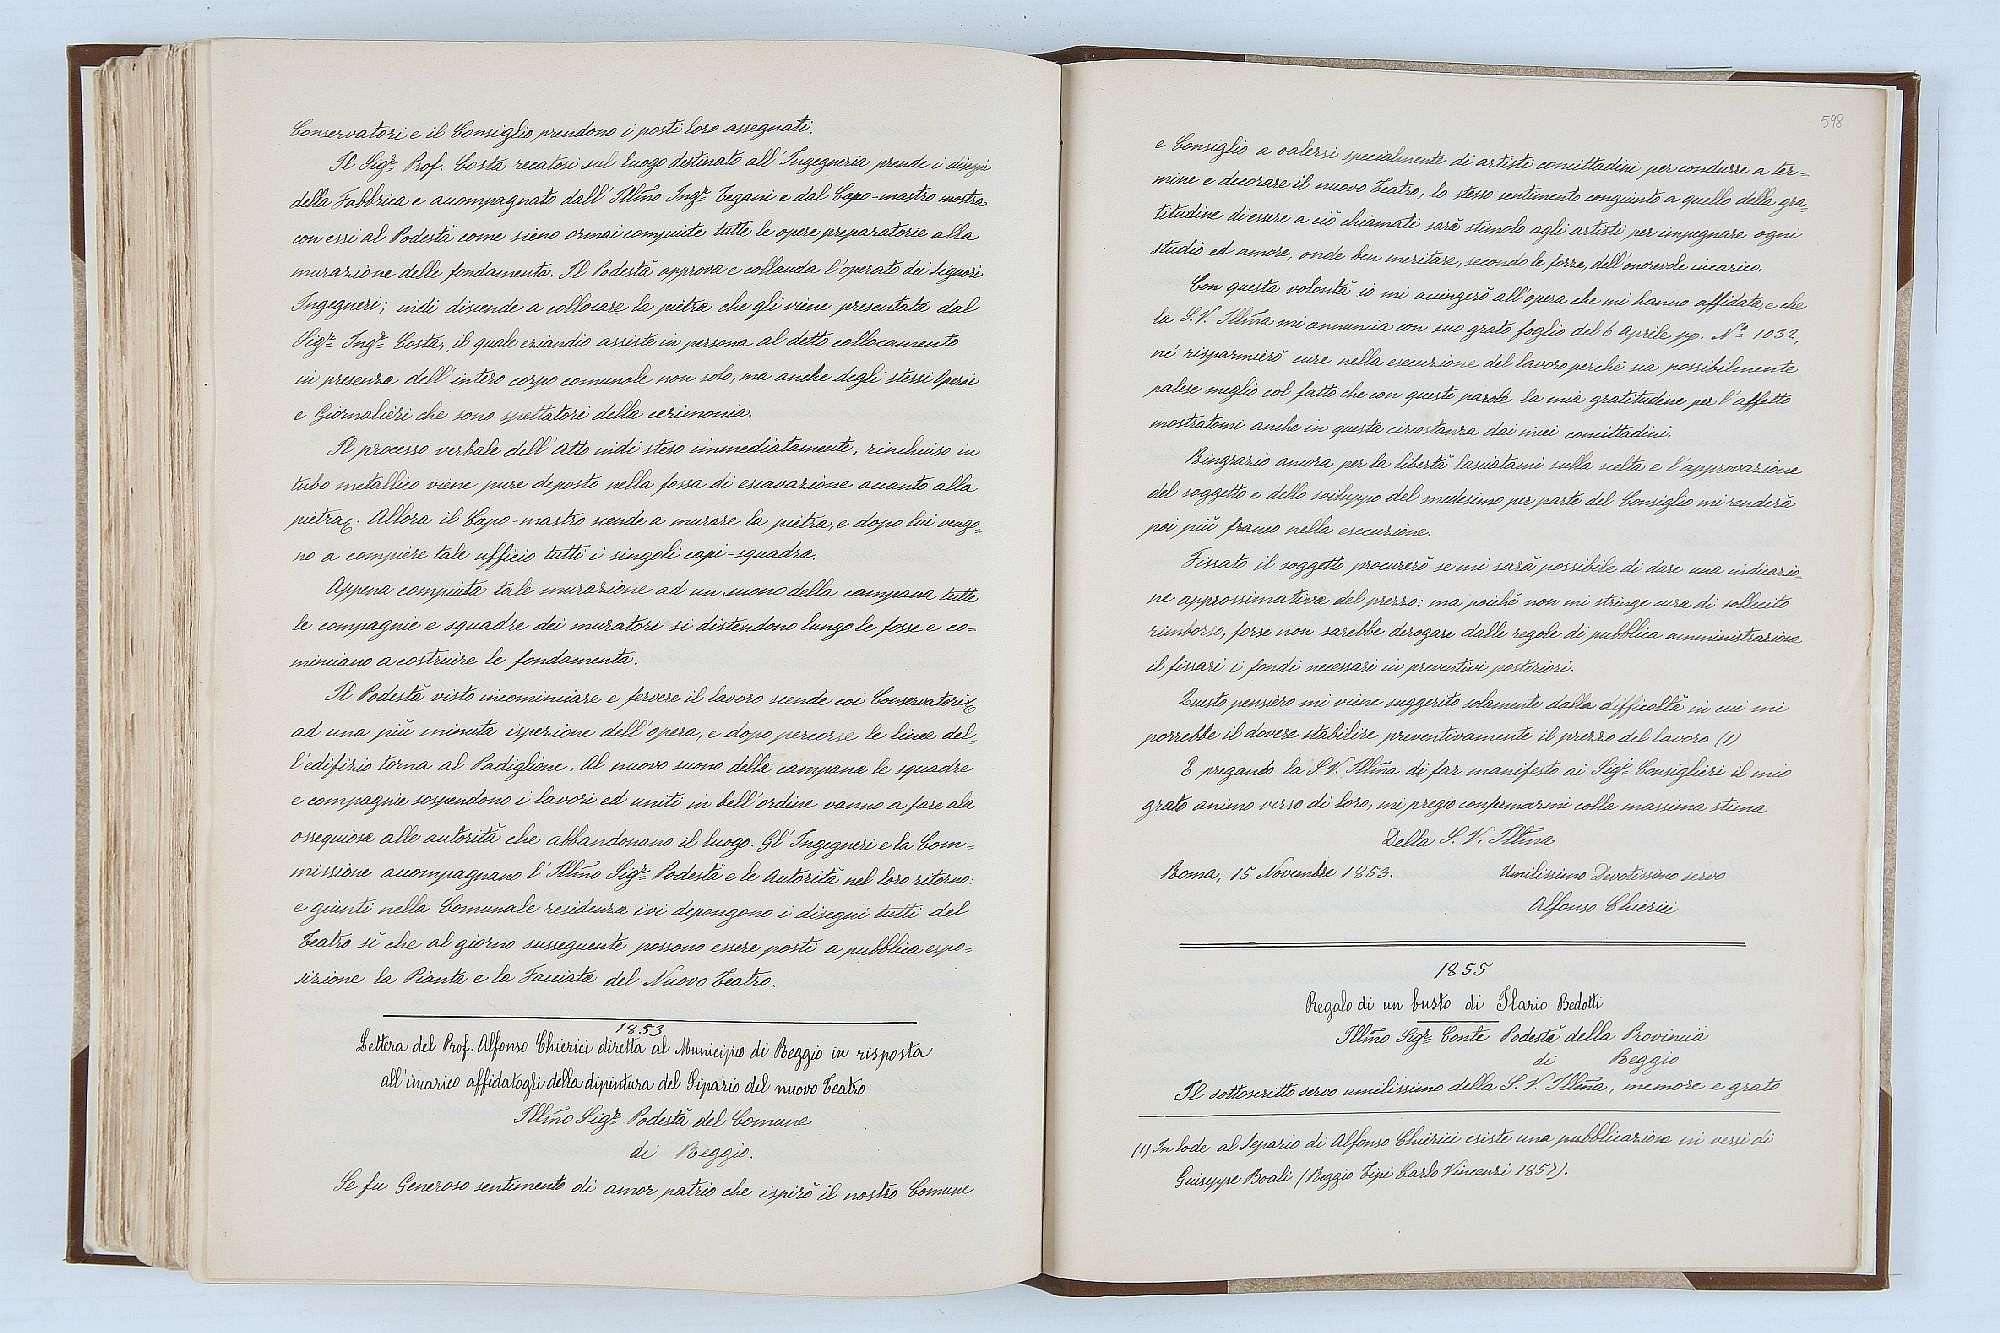 Conservatori e il Consiglio prendono i posti loro assegnati.
Il Sigr. Prof. Costa recatosi sul luogo destinato all'Ingegneria prende i disegni
della Fabbrica e accompagnato dall'Illmo Ingr. Tegani e dal Capo-mastro mostra
con essi al Podestà come sieno ormai compiute tutte le opere preparatorie alla
murazione delle fondamenta. Il Podestà approva e collauda l'operato dei Signori
Ingegneri; indi discende a collocare la pietra che gli viene presentata dal
Sigr. Ingr. Costa, il quale eziandio assiste in persona al detto collocamento
in presenza dell'intero corpo comunale non solo, ma anche degli stessi Operai
e Giornalieri che sono spettatori della cerimonia.
Il processo verbale dell'Atto indi steso immediatamente, rinchiuso in
tubo metallico viene pure deposto nella fossa di escavazione accanto alla
pietra. Allora il Capo-mastro scende a murare la pietra, e dopo lui vengo-
no a compiere tale ufficio tutti i singoli capi-squadra.
Appena compiuta tale murazione ad un suono della campana tutte
le compagnie e squadre dei muratori si distendono lungo le fosse e co-
minciano a costruire le fondamenta.
Il Podestà visto incominciare e fervere il lavoro scende coi Conservatori
ad una più minuta ispezione dell'opera, e dopo percorse le linee del-
l'edifizio torna al Padiglione. Al nuovo suono delle campane le squadre
e compagnie sospendono i lavori ed uniti in bell'ordine vanno a fare ala
ossequiosa alle autorità che abbandonano il luogo. Gl'Ingegneri e la Com-
missione accompagnano l'Illmo Sigr. Podestà e le Autorità nel loro ritorno:
e giunti nella Comunale residenza ivi depongono i disegni tutti del
Teatro sì che al giorno susseguente possono essere posti a pubblica espo-
sizione la Pianta e la Facciata del Nuovo Teatro.
1853
Lettera del Prof. Alfonso Chierici diretta al Municipio di Reggio in risposta
all'incarico affidatogli della dipintura del Sipario del nuovo Teatro
Illmo Sigr. Podestà del Comune
di Reggio.
Se fu Generoso sentimento di amor patrio che ispirò il nostro Comune
598
e Consiglio a valersi specialmente di artisti concittadini per condurre a ter-
mine e decorare il nuovo Teatro, lo stesso sentimento congiunto a quello della gra-
titudine di essere a ciò chiamati sarà stimolo agli artisti per impegnare ogni
studio ed amore, onde ben meritare, secondo le forze, dell'onorevole incarico.
Con questa volontà io mi accingerò all'opera che mi hanno affidata, e che
la S.V. Illma mi annuncia con suo grato foglio del 6 Aprile pp. No. 1032,
né risparmierò cure nella esecuzione del lavoro perché sia possibilmente
palese meglio col fatto che con queste parole la mia gratitudine per l'affetto
mostratomi anche in questa circostanza dai miei concittadini.
Ringrazio ancora per la libertà lasciatami sulla scelta e l'approvazione
del soggetto e dello sviluppo del medesimo per parte del Consiglio mi renderà
poi più franco nella esecuzione.
Fissato il soggetto procurerò se mi sarà possibile di dare una indicazio-
ne approssimativa del prezzo: ma poiché non mi stringe cura di sollecito
rimborso, forse non sarebbe derogare dalle regole di pubblica amministrazione
il fissari i fondi necessari in preventivi posteriori.
Questo pensiero mi viene suggerito solamente dalla difficoltà in cui mi
porrebbe il dovere stabilire preventivamente il prezzo del lavoro (1)
E pregando la S.V. Illma di far manifesto ai Sigi. Consiglieri il mio
grato animo verso di loro, mi pregio confermarmi colla massima stima
Della S. V. Illma
Roma, 15 Novembre 1853. Umilissimo Devotissimo servo
Alfonso Chierici
1855
Regalo di un busto di Ilario Bedotti
Illmo Sigr. Conte Podestà della Provincia
di Reggio
Il sottoscritto servo umilissimo della S. V. Illma, memore e grato
(1) In lode al Sipario di Alfonso Chierici esiste una pubblicazione in versi di
Giuseppe Boali (Reggio Tipi Carlo Vincenzi 1857).